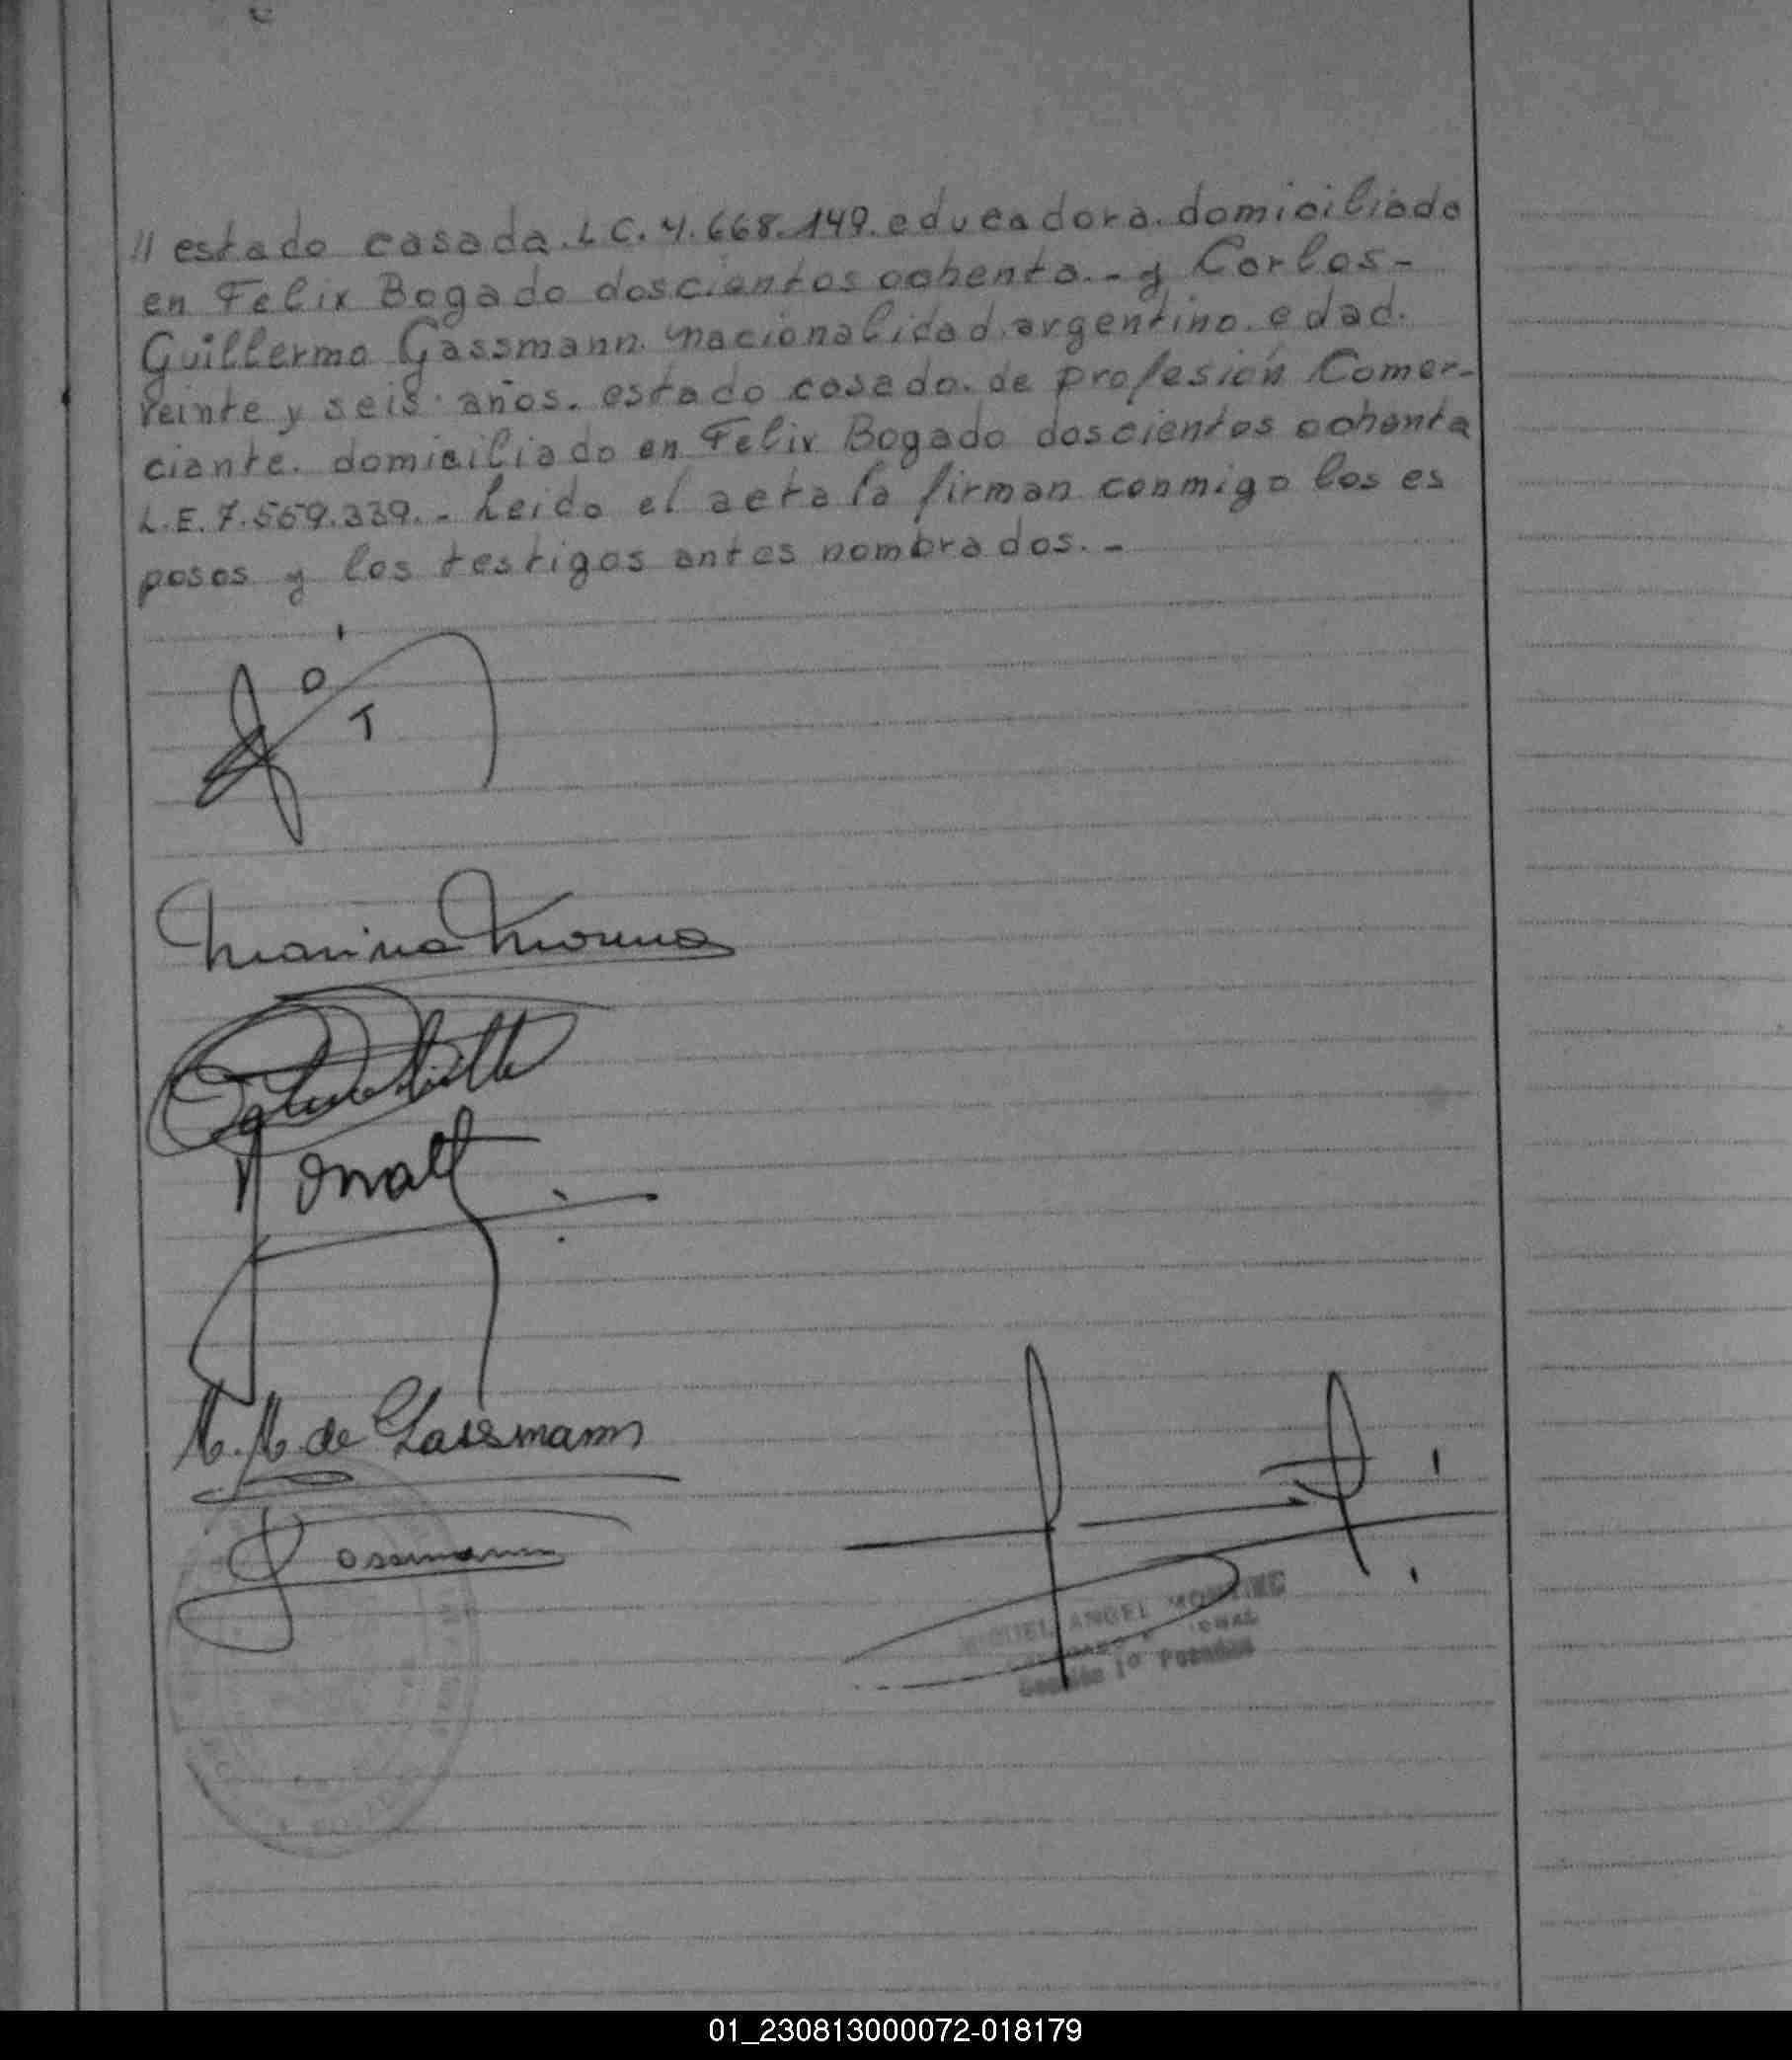 // estado casada. L C. 4.668.149. educadora. domiciliada
en Felix Bogado doscientos ochenta.- y Carlos-
Guillermo Gassmann. nacionalidad. argentino. edad.
veinte y seis años. estado casado. de profesión Comer-
ciante. domiciliado en Felix Bogado doscientos ochenta
L.E. 7.559.339.- Leida el acta la firman conmigo los es
posos y los testigos antes nombrados.-
Marina
M. M. de Gassmann
Gassmann
MIGUEL ANGEL
Sección 1º Posadas
01_230813000072-018179